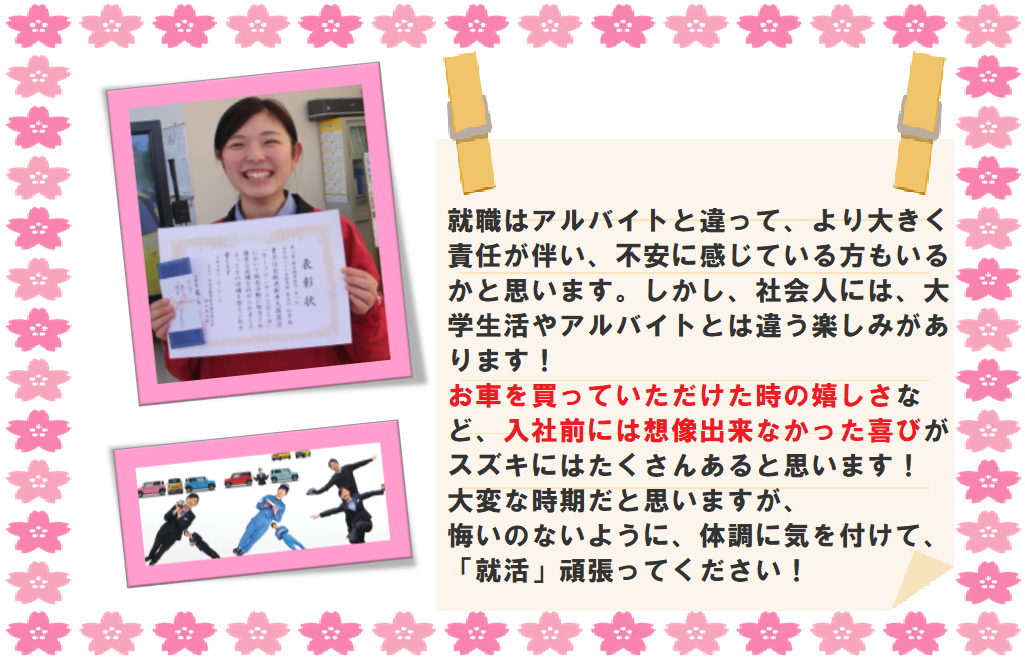 就職はアルバイトと違って、より大きく
責任が伴い、不安に感じている方もいる
かと思います。しかし、社会人には、大
学生活やアルバイトとは違う楽しみがあ
ります！
お車を買っていただけた時の嬉しさな
ど、入社前には想像出来なかった喜びが
スズキにはたくさんあると思います！
大変な時期だと思いますが、
悔いのないように、体調に気を付けて、
「就活」頑張ってください！
表彰状